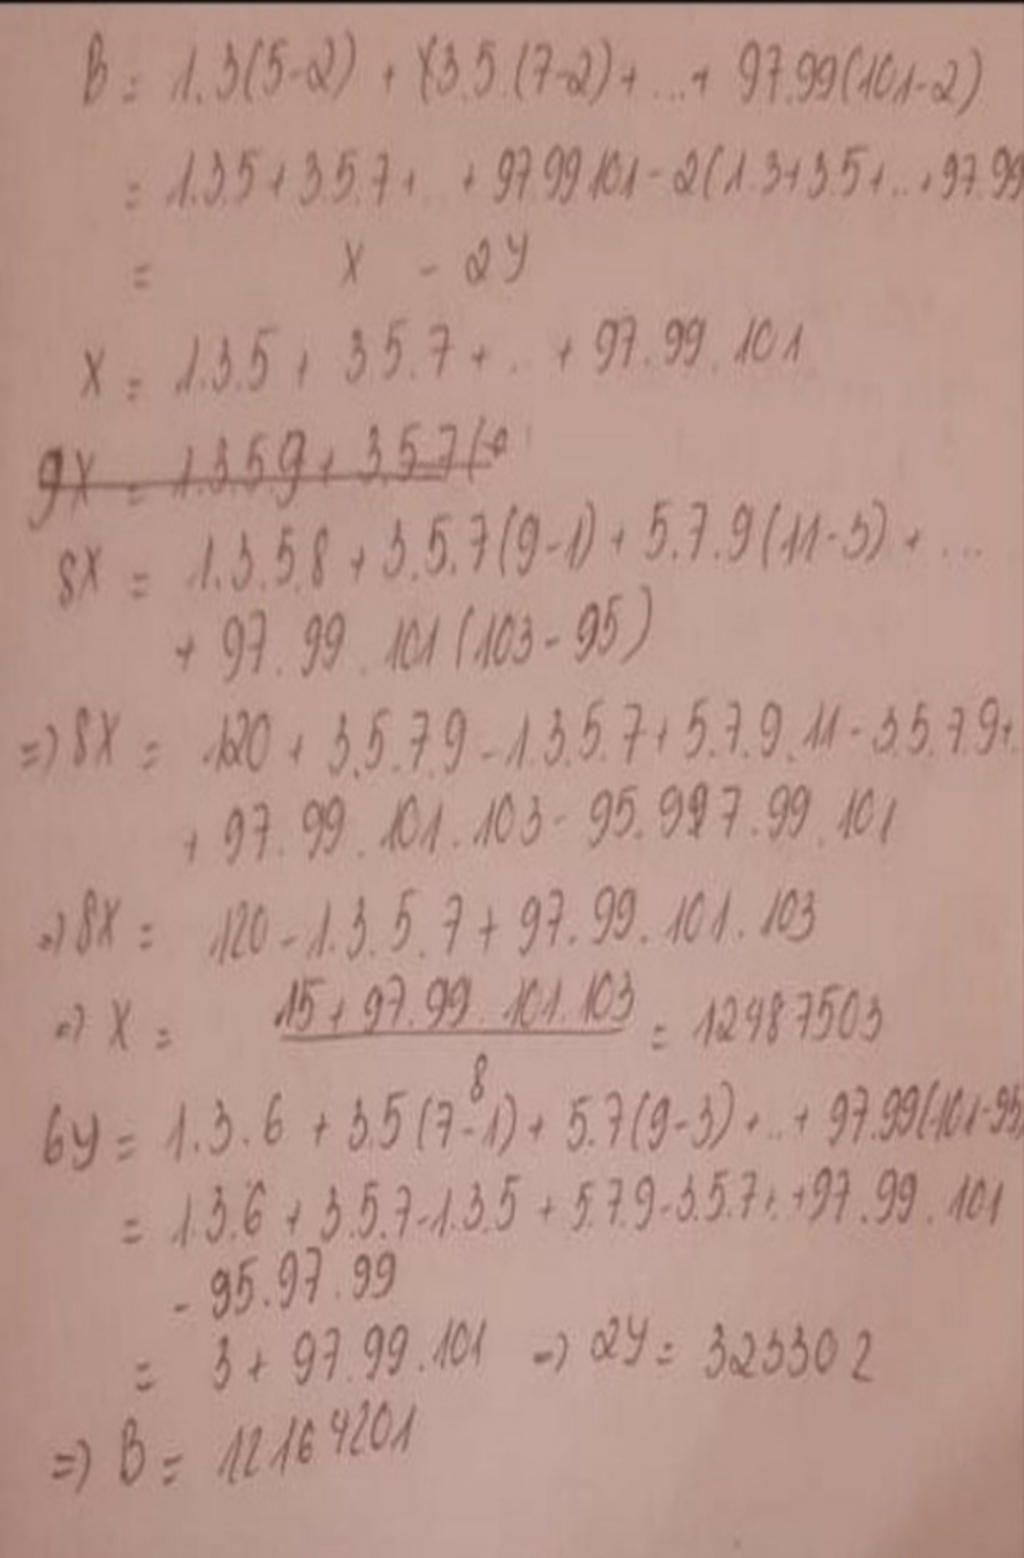 B = 1.3(5-2) + 3.5.(7-2)+...+ 97.99(101-2)
= 1.3.5+3.5.7+..+97.99.101-2(1.3+3.5+..+97.99
= X - 2Y
X = 1.3.5+ 3.5.7+..+97.99.101
9X = 1.3.5.9+ 3.5.7(
8X = 1.3.5.8 + 3.5.7(9-1)+5.7.9(11-3)+...
+ 97.99.101(103-95)
=> 8X = 120 + 3.5.7.9-1.3.5.7+5.7.9.11-3.5.7.9+.
+ 97.99.101.103-95.997.99.101
=> 8X = 120-1.3.5.7+97.99.101.103
=> X = 15+97.99.101.103 = 12487503
8
6Y = 1.3.6 + 3.5(7-1)+ 5.7(9-3)+..+ 97.99(101-95)
= 1.3.6 + 3.5.7-1.3.5 + 5.7.9-3.5.7+..+97.99.101
- 95.97.99
= 3+ 97.99.101 => 2Y = 323302
=> B = 12164201